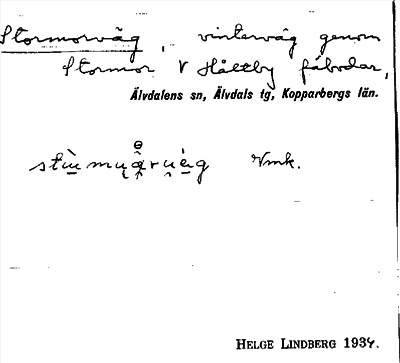 Stormorväg, vinterväg genom
Stormor V Håltby fäbodar,
Älvdalens sn, Älvdals tg, Kopparbergs län.
Vmk.
HELGE LINDBERG 1934.